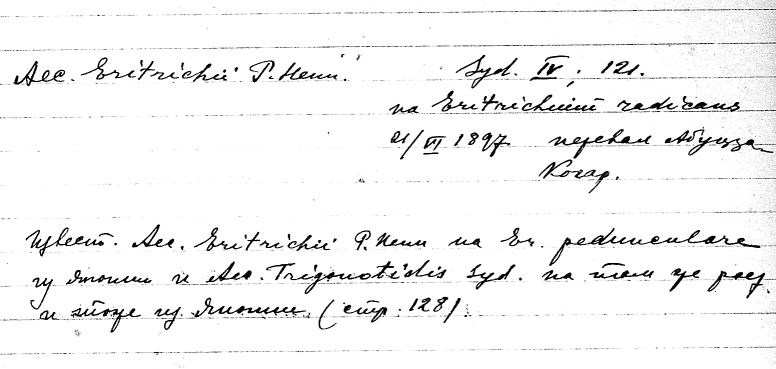 Aec. Eritrichii P. Henn. Syd. IV, 121.
на Eritrichium radicans
21/VI 1897 перевал Абуцза-
Когар.
Извест. Aec. Eritrichii P. Henn на Er. pedunculare
из Японии и Aec. Trigonotidis Syd. на том же раст.
и тоже из Японии. (стр. 128)